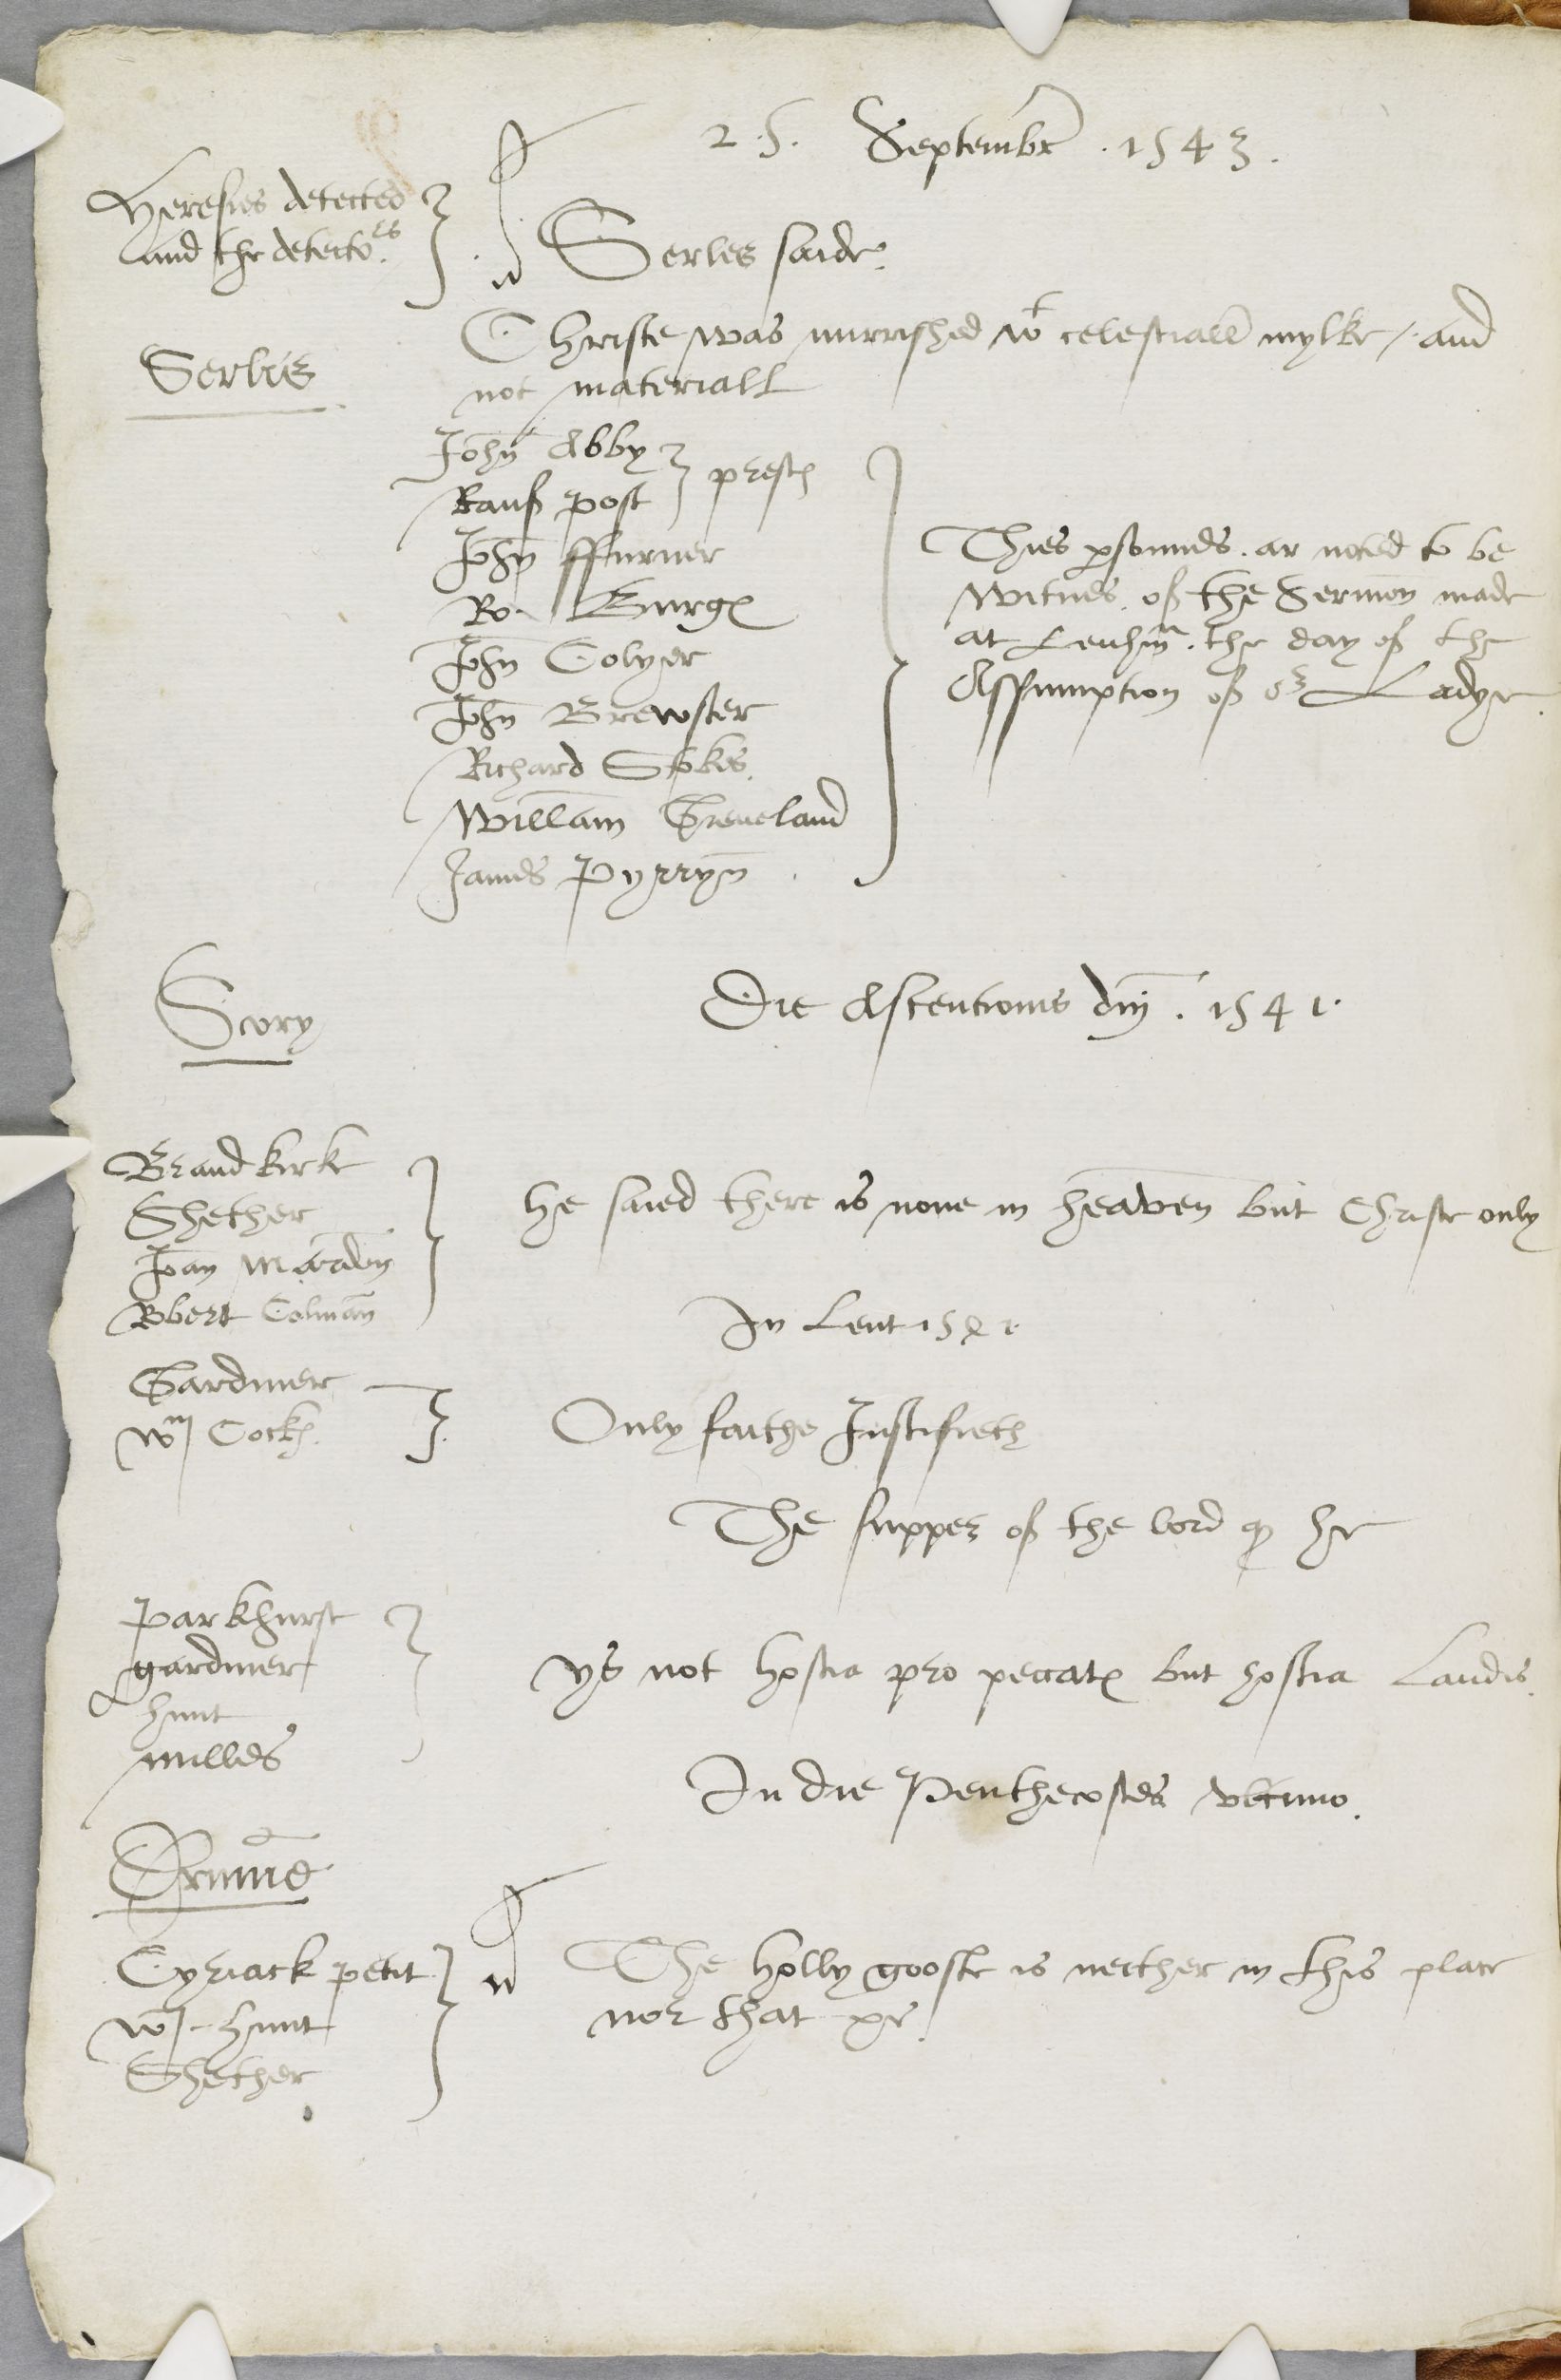 25. Septembr . 1543.
Heresies detected
and the detectores.
Serles saide.
Serlis
Christe was nurrished wt celestiall mylke / and
not materiall
John Abby
Rauf post
prestes
John ffurner
Ro. Burges
John Colyer
John Brewster
Richard Stokes.
William Greneland
James Pyrryn
Thies psounes . ar noted to be
Witnes of the Sermon made
at Lenhm . the day of the
Assumption of or Ladye.
Scory
Die Ascentionis dni . 1541.
Brandkirke
Shether
Joan Mardon
Robert Colman
he saied there is none in heaven but Christe only
In Lent 1541
Gardiner
Wm Cockes.
Only faithe Justifieth
The supper of the lord he
Parkhurst
gardiner
hunt
milles
ys not hostia pro peccatis but hostia Laudis.
In die Penthecostes ultimo.
Drumme
Cyriack petit
Wm hunt
Shether
The holly gooste is neither in this place
nor that